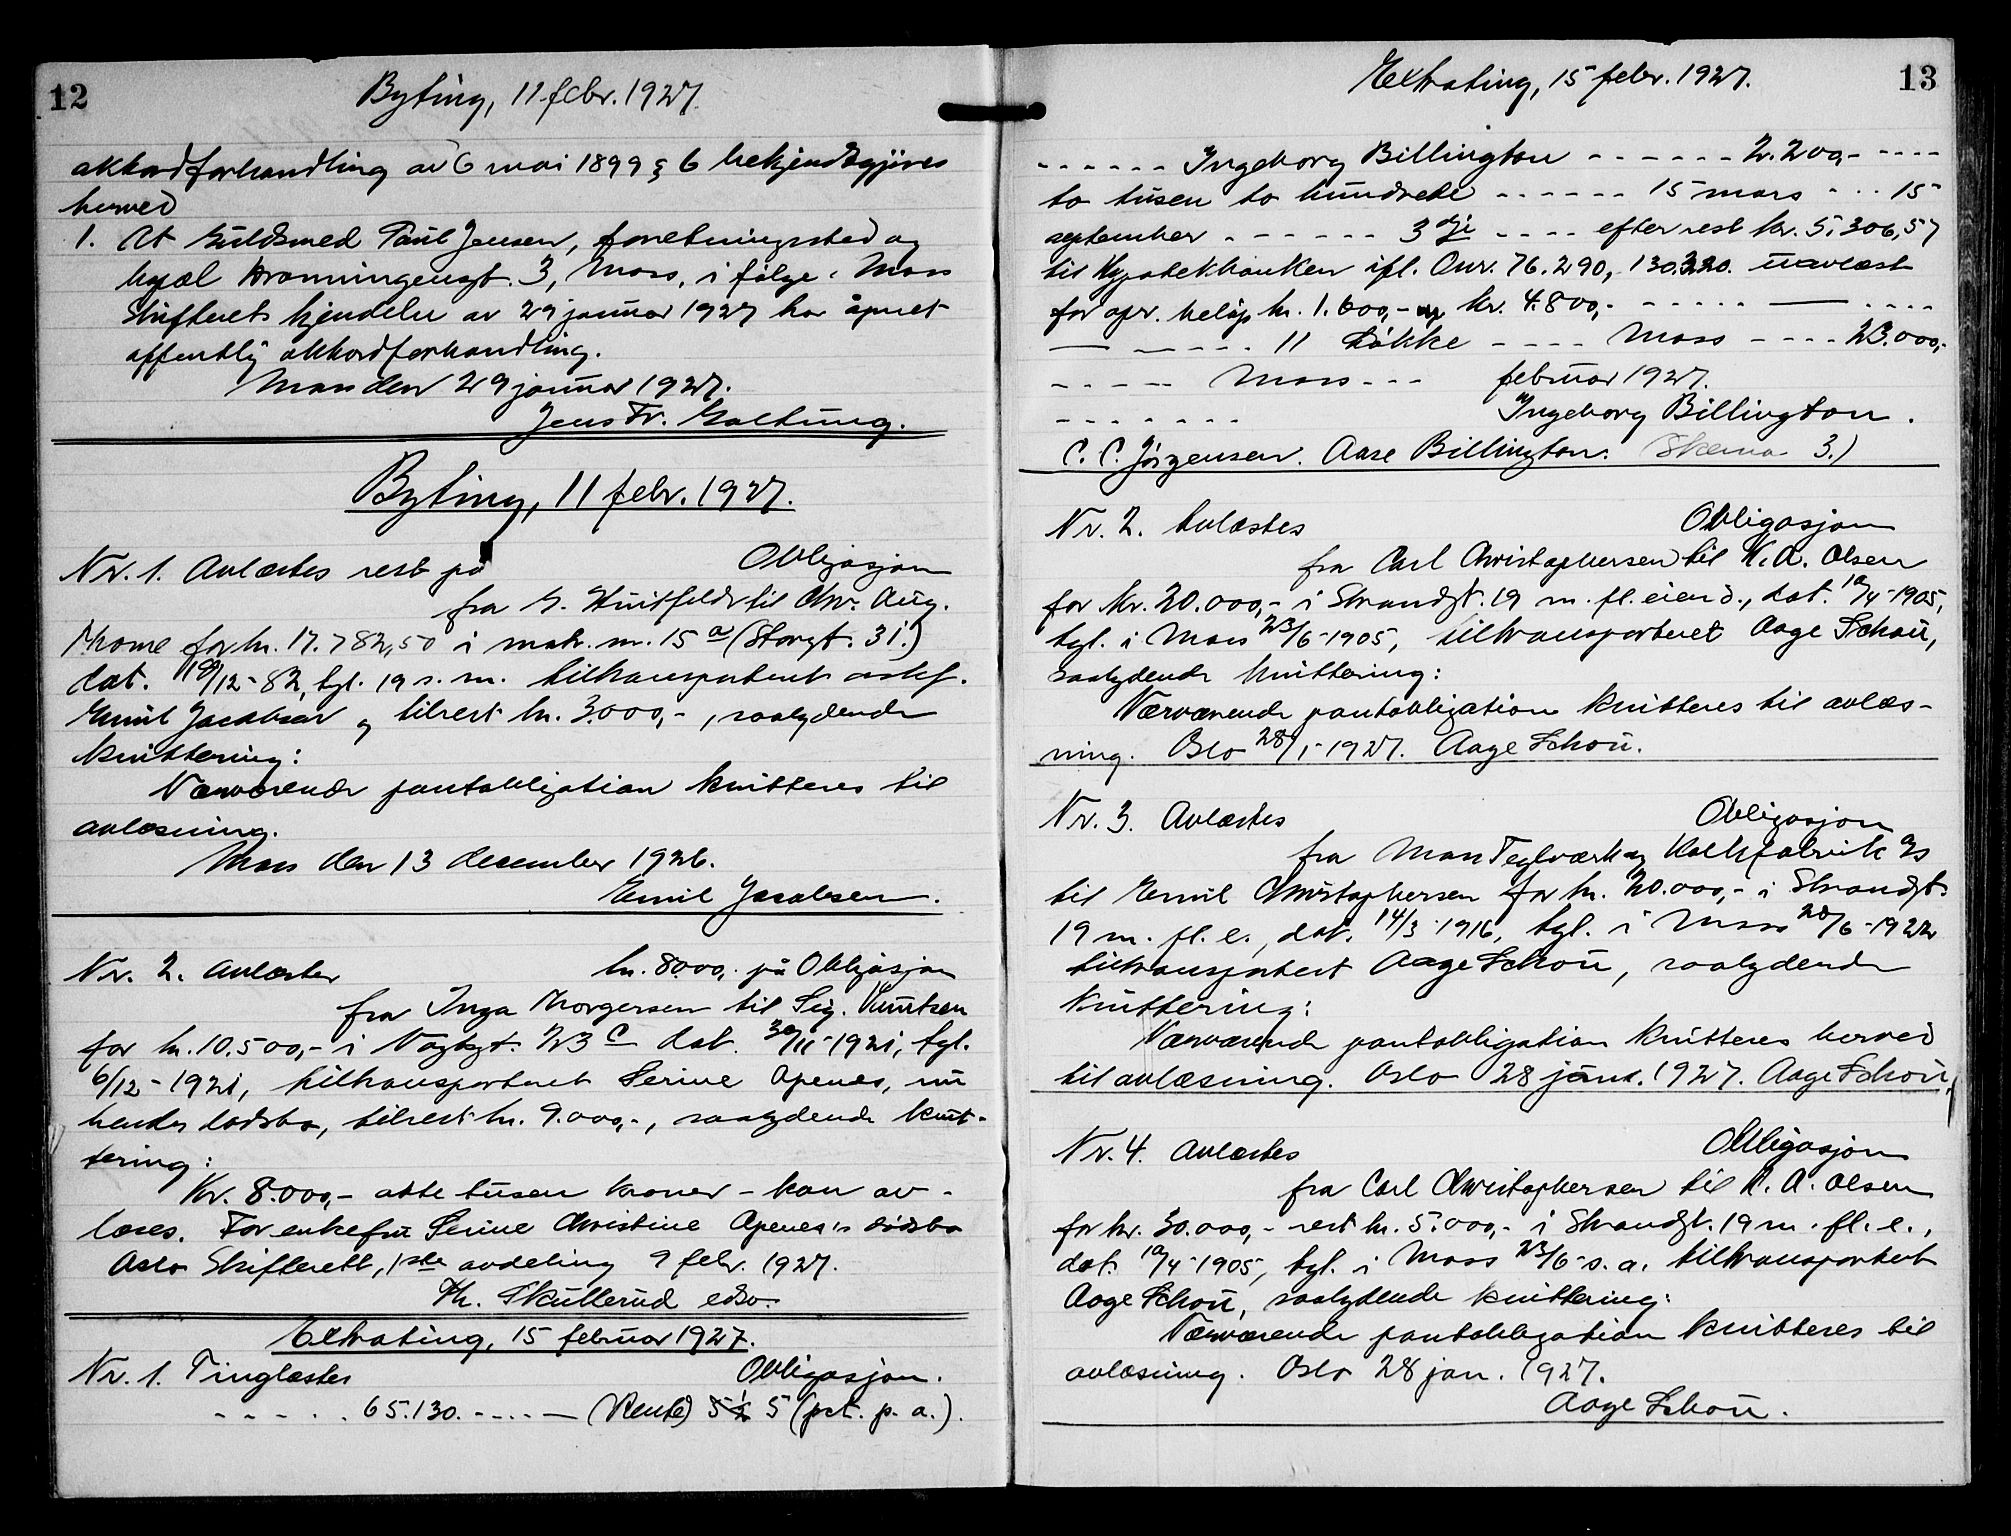 12
Byting, 11 febr. 1927.
akkordforhandling av 6 mai 1899 § 6 bekjendtgjøres
herved
1. At Guldsmed Paul Jensen, foretningssted og
bopæl Dronningensgt. 3, Moss, i følge Moss
Skifteret kjendelse av 29 januar 1927 har åpnet
offentlig akkordforhandling.
Moss den 29 januar 1927.
Jens Fr. Galtung.
Byting, 11 febr. 1927.
Nr. 1. Avlæstes rest på Obligasjon
fra G. Huitfeldt til Chr. Aug.
Thorne for kr. 17.782,50 i matr. nr. 15 a (Storgt. 31.)
dat. 18/12-82, tgl. 19 s. m. tiltransportert
Emil Jacobsen og tilrest kr. 3.000,-, saalydende
kvittering:
Nærværende pantobligation kvitteres til
avlæsning.
Moss den 13 december 1926.
Emil Jacobsen.
Nr. 2. Avlæstes kr. 8000,- på Obligasjon
fra Inga Thorgersen til Sig. Knutsen
for kr. 10.500,- i Vogtgt. 23 c dat. 30/11-1921, tgl.
6/12-1921, tiltransporteret Serine Apenes, nu
hendes dødsbo, tilrest kr. 9.000,-, saalydende kvit-
tering:
Kr. 8.000,- otte tusen kroner - kan av-
læses. For enkefru Serine Christine Apenes's dødsbo
Oslo Skifterett, 1ste avdeling 9 febr. 1927.
Th. Skullerud edsv.
Extrating, 15 februar 1927.
Nr. 1. Tinglæstes Obligasjon.
- - - - - 65.130. - - - - — (Rente) 5 1/2 5 (pct. p. a.).
13
Extrating, 15 febr. 1927.
- - - - - - Ingeborg Billington - - - - - - 2.200,- - - - -
to tusen to hundrede - - - - - - 15 mars - - - 15
september - - - - - - 3dje - - - - efter rest kr. 5.306,57
til Hypotekbanken ifl. Onr. 76.290, - 130.320. uavlæst
for opr. beløp kr. 1.600,- og kr. 4.800,- - - - - - — - - - -
— - - - - - 11 Løkke - - - - Moss - - - - 23.000,-
- - - - - Moss - - - februar 1927.
- - - - - - - Ingeborg Billington.
C. C. Jørgensen. Aase Billington. (Skema 3.)
Nr. 2. Avlæstes Obligasjon
fra Carl Christophersen til K. A. Olsen
for kr. 20.000,- i Strandgt. 19 m. fl. eiend., dat. 10/4-1905,
tgl. i Moss 23/6-1905, tiltransporteret Aage Schou,
saalydende kvittering:
Nærværende pantobligation kvitteres til avlæs-
ning. Oslo 28/1-1927. Aage Schou.
Nr. 3. Avlæstes Obligasjon
fra Moss Teglværk og Kalkfabrik A/S
til Emil Christophersen for kr. 20.000,- i Strandgt.
19 m. fl. e., dat. 14/3-1916, tgl. i Moss 20/6-1922
tiltransportert Aage Schou, saalydende
kvittering:
Nærværende pantobligation kvitteres herved
til avlæsning. Oslo 28 jan. 1927. Aage Schou.
Nr. 4. Avlæstes Obligasjon
fra Carl Christophersen til K. A. Olsen
for kr. 30.000,- rest kr. 5.000,- i Strandgt. 19 m. fl. e.,
dat. 10/4-1905, tgl. i Moss 23/6-s. a. tiltransportert
Aage Schou, saalydende kvittering:
Nærværende pantobligation kvitteres til
avlæsning. Oslo 28 jan. 1927.
Aage Schou.